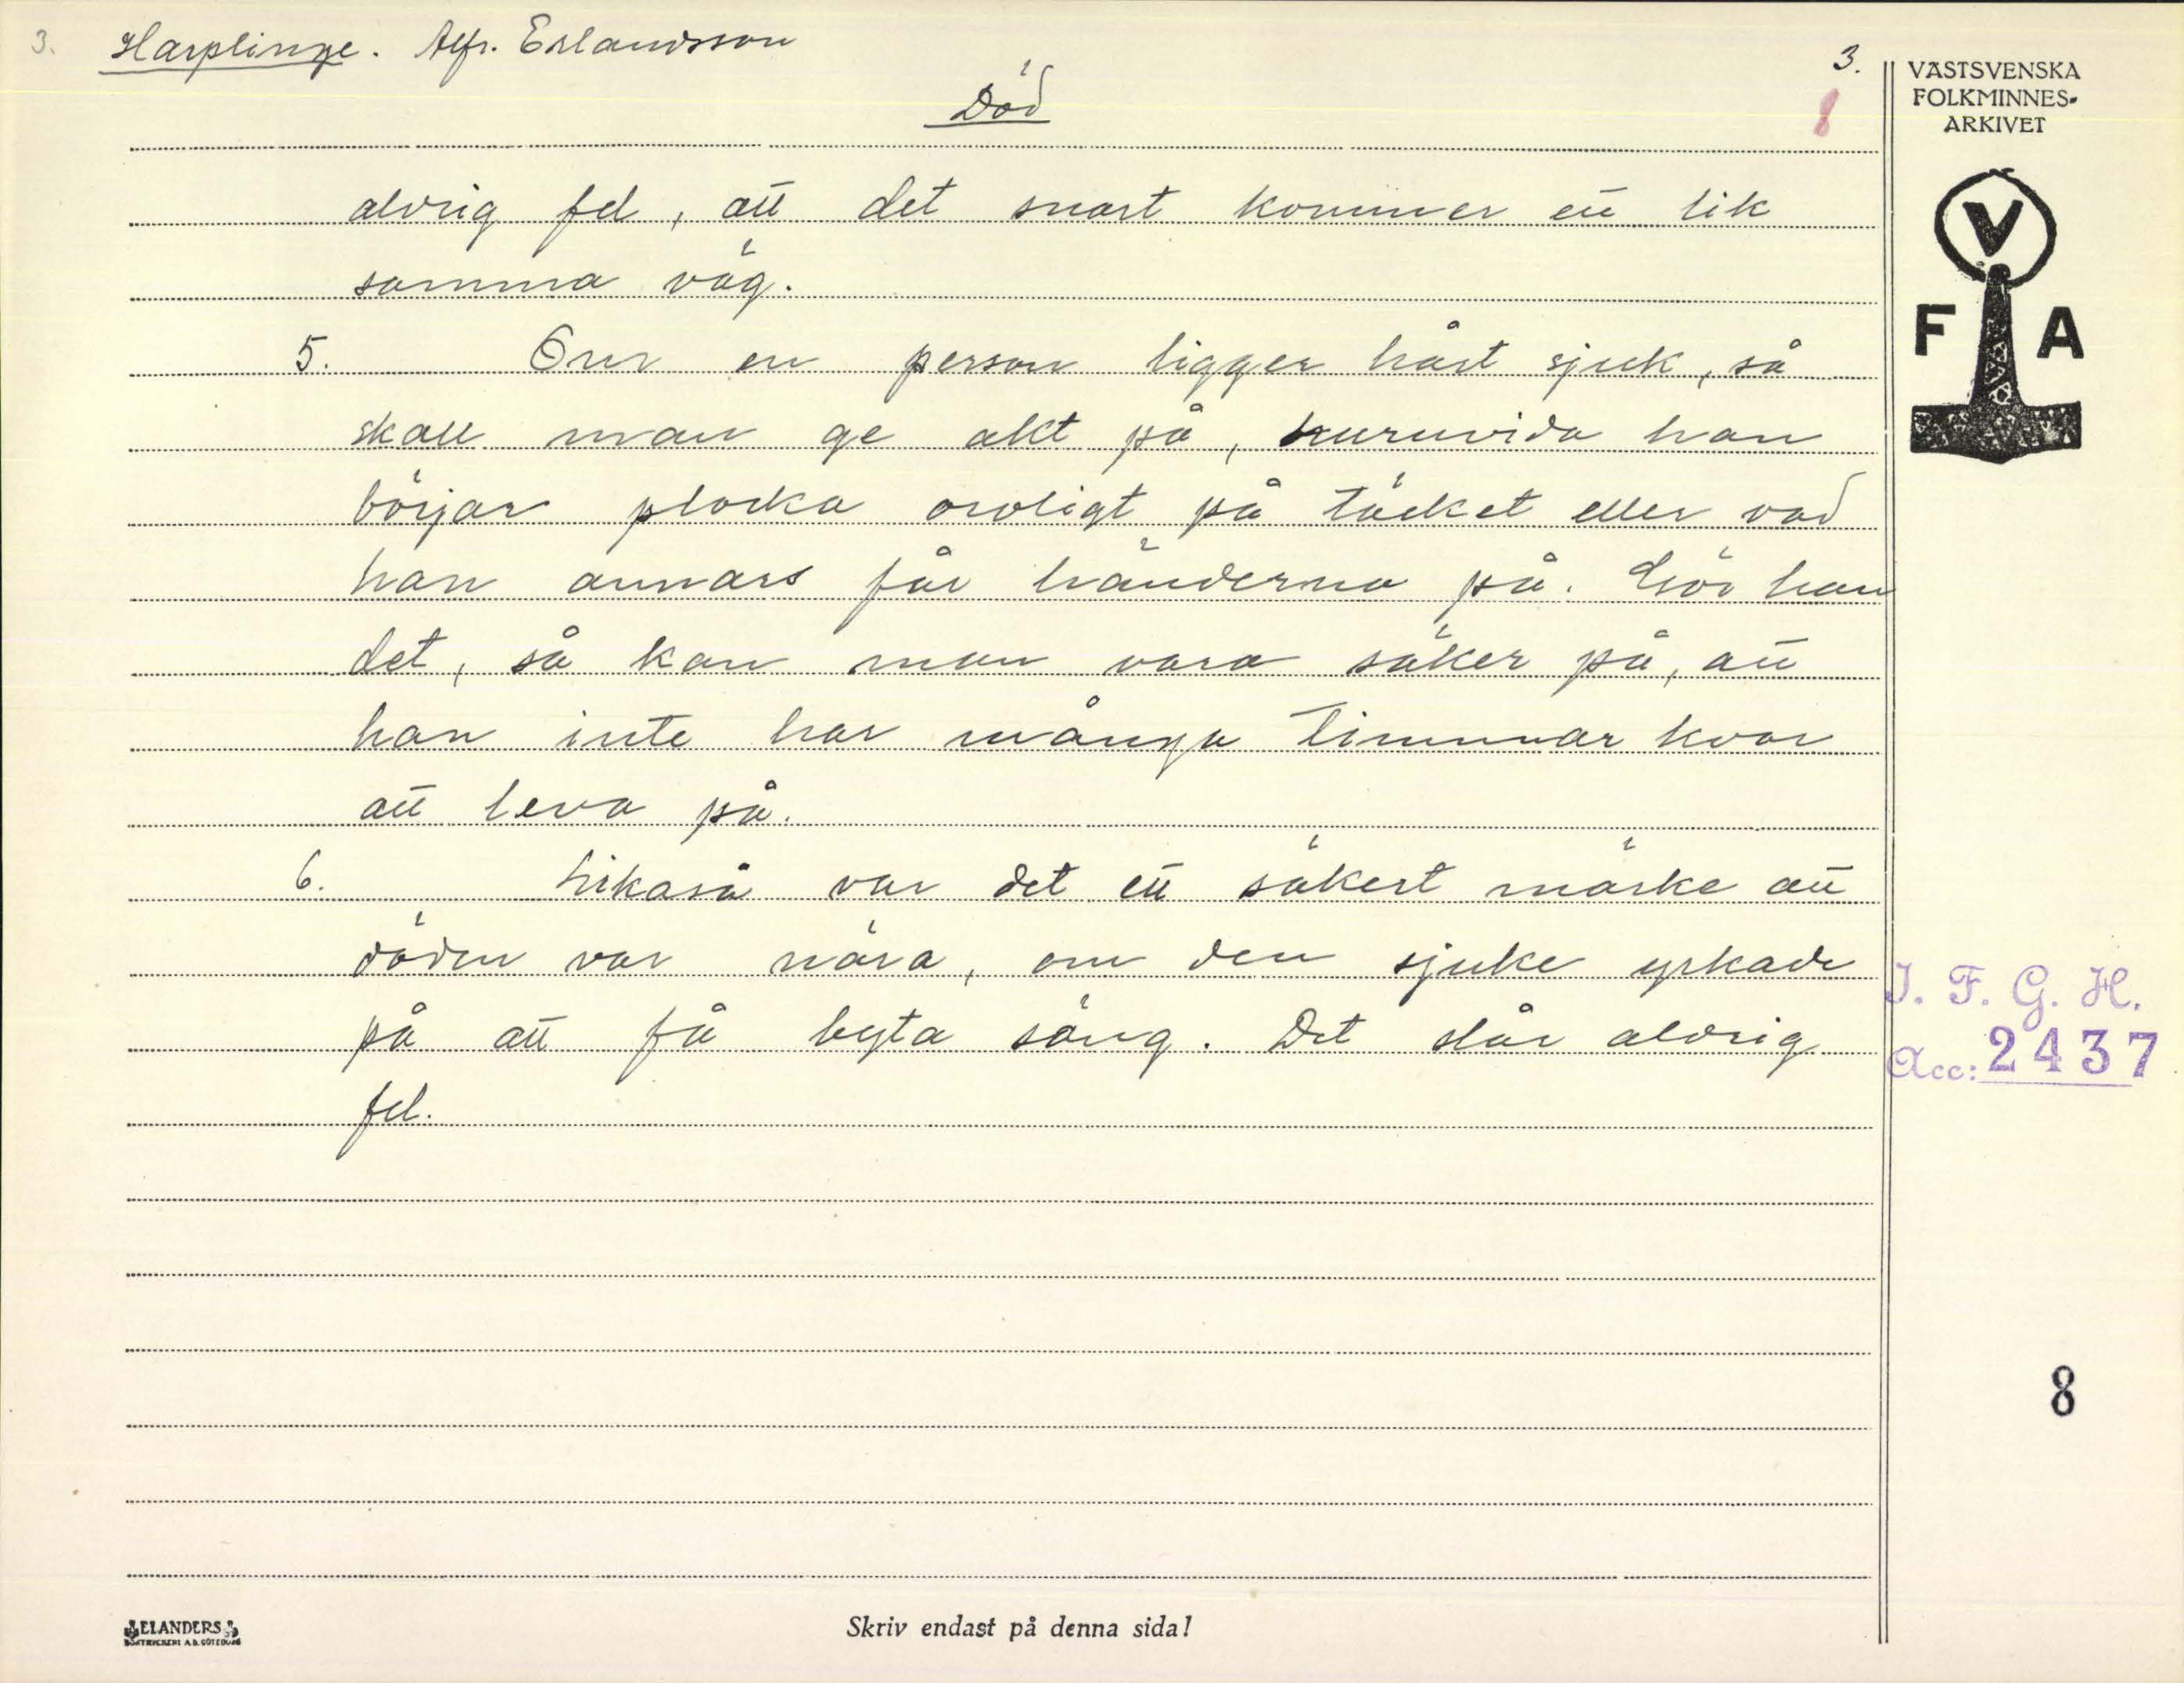 3. Harplinge. Alfr. Erlandsson
3.
Död
8
aldrig fel, att det snart kommer ett lik
samma väg.
5. Om en person ligger hårt sjuk, så
skall man ge akt på, huruvida han
börjar plocka oroligt på täcket eller vad
han annars får händerna på. Gör han
det, så kan man vara säker på, att
han inte har många timmar kvar
att leva på.
6. Likaså var det ett säkert märke att
döden var nära, om den sjuke yrkade
på att få byta säng. Det slår aldrig
fel.
VÄSTSVENSKA
FOLKMINNES-
ARKIVET
V
F A
I. F. G. H.
Acc: 2437
8
ELANDERS
BOKTRYCKERI A.B. GÖTEBORG
Skriv endast på denna sida!